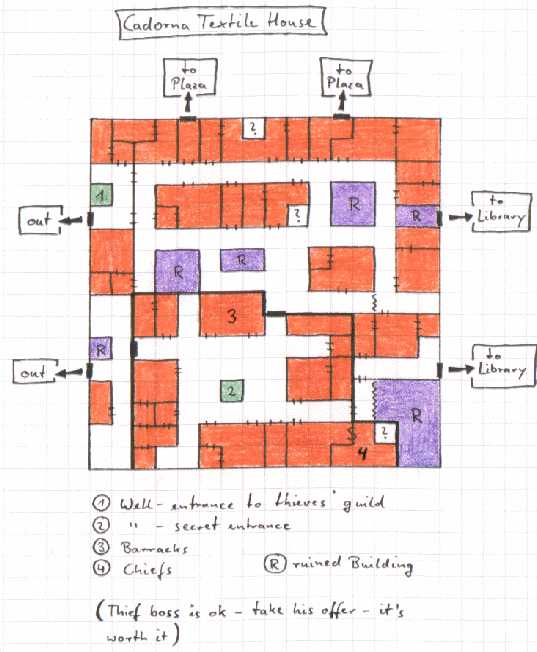 Cadorna Textile House
to Plaza
to Plaza
?
1
R
R
to Library
out
?
R
R
3
R
out
to Library
2
R
?
4
① Well - entrance to thieves' guild
② " - secret entrance
③ Barracks
④ Chiefs
Ⓡ ruined Building
(Thief boss is ok - take his offer - it's
worth it)